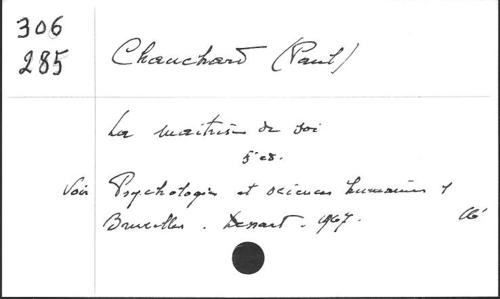 306
285
Chauchard (Paul)
La maitrise de soi
5e ed.
Voir Psychologie et sciences humaines 1
Bruxelles. Dessart. 1967.